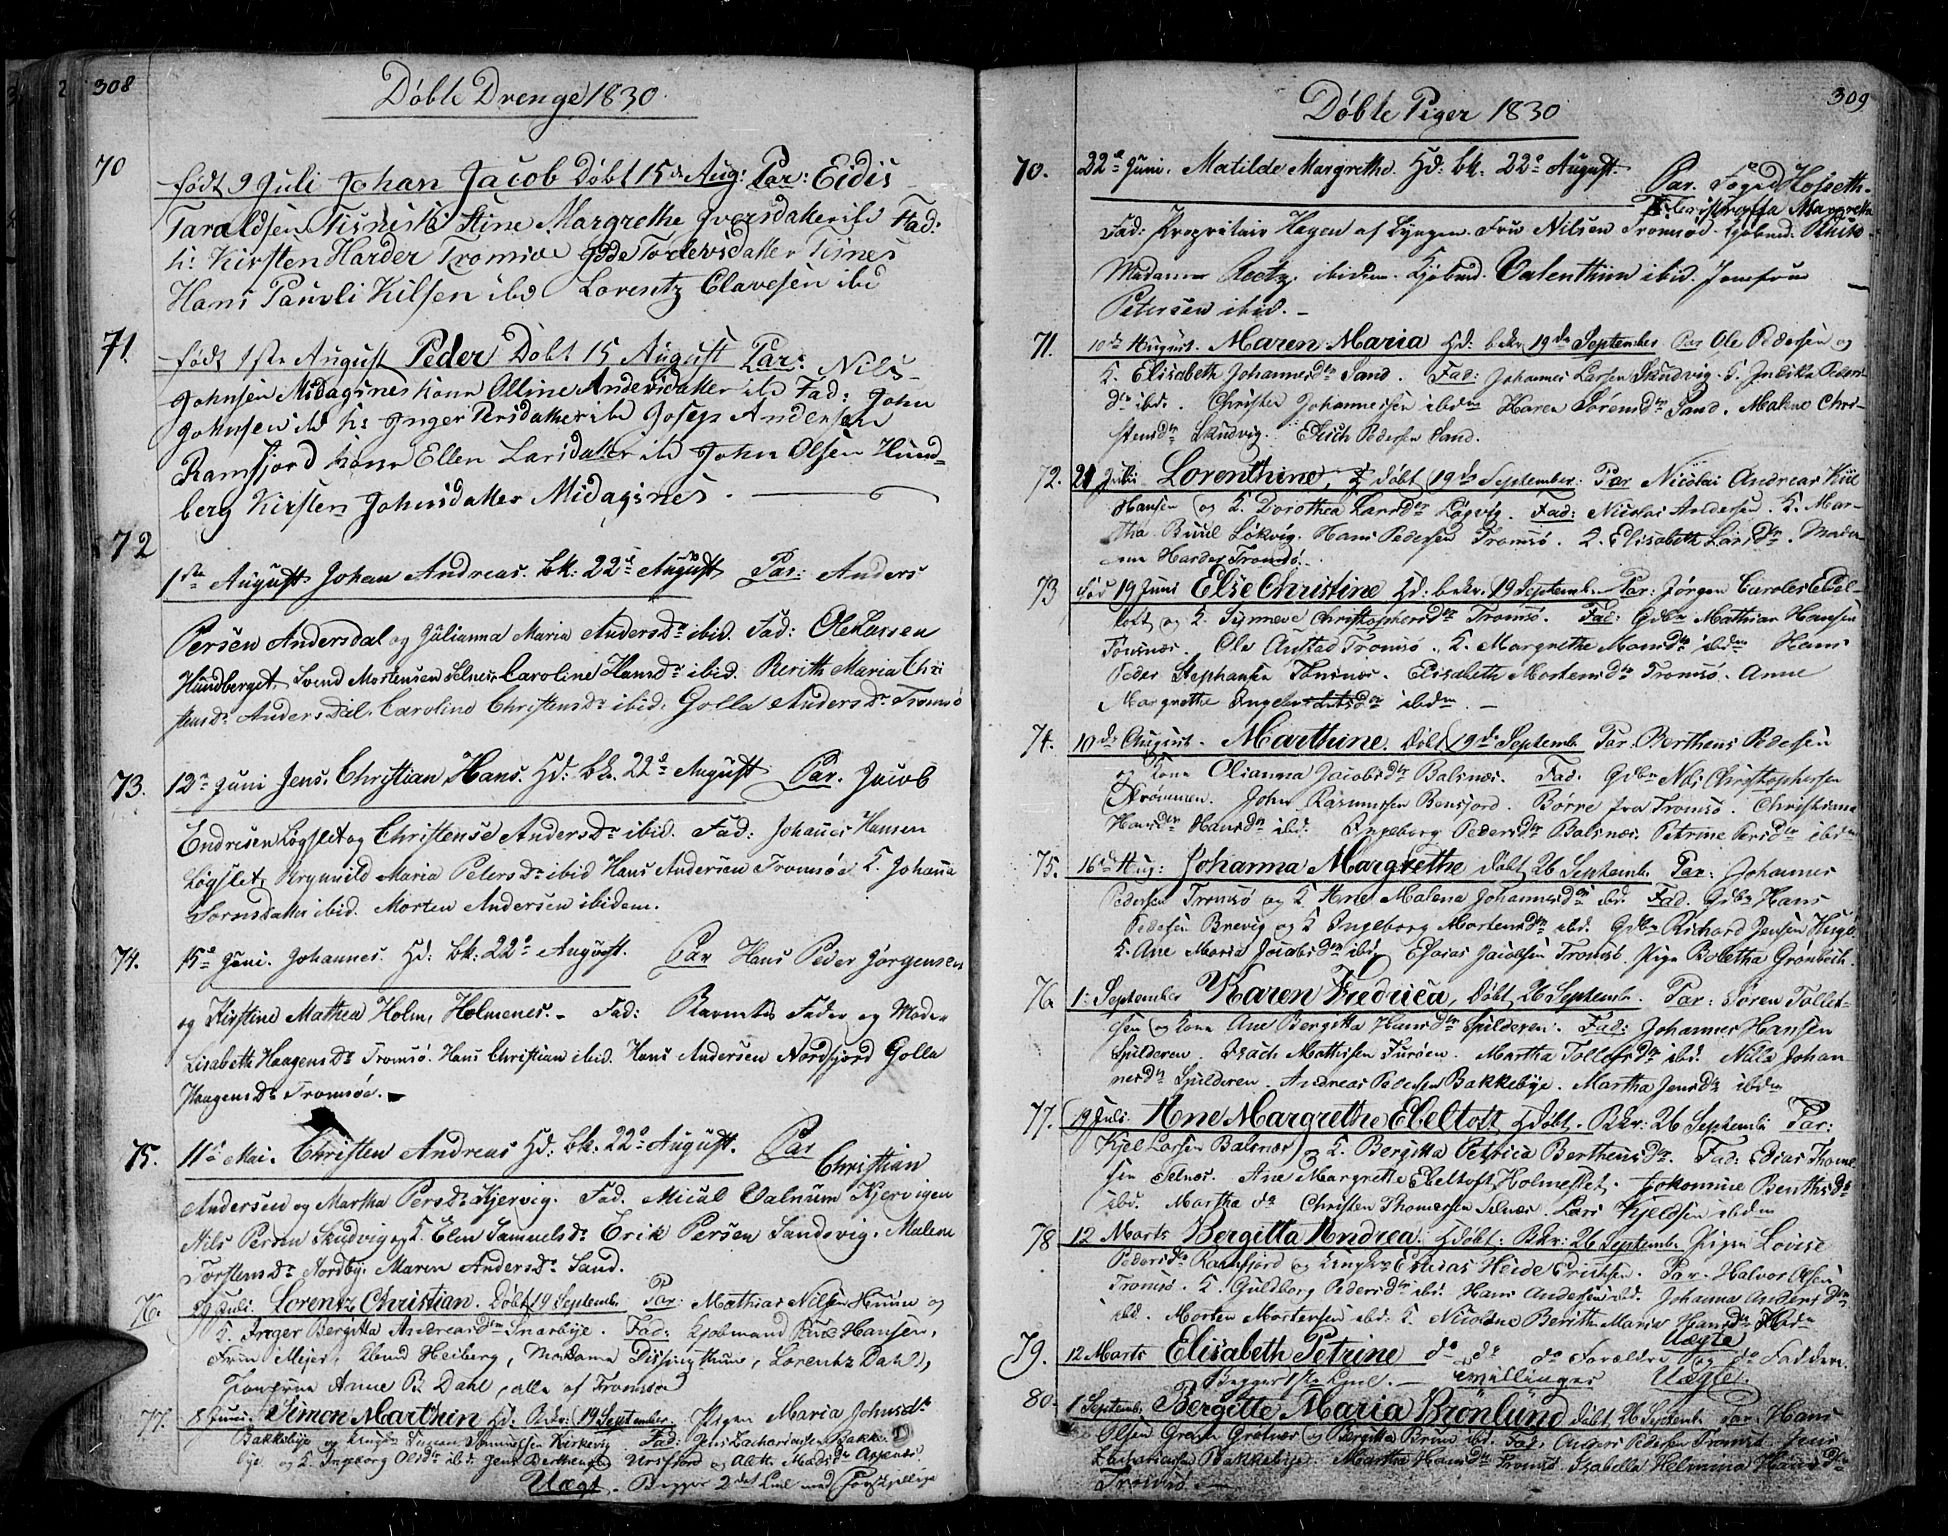 308
Døbte Drenge 1830.
70
født 9 Juli Johan Jacob Døbt 15de Aug: Par: Eidis
Taraldsen Tisnes k: Stine Margrethe Iversdatter ibd Fad:
k: Kirsten Harder Tromsøe Torlevsdatter Tisnes
Hans Pauvli Kilsen ibd Lorentz Clavesen ibd
71.
født 1ste August Peder Døbt 15 August Par: Nils
Johnsen Midagsnes kone Olline Andersdatter ibd Fad: John
Johnsen ibd k: Inger Persdatter ibd Josep Andersen
Ramfjord kone Ellen Larsdatter ibd John Olsen Hund-
berg Kirsten Johnsdatter Midagsnes.
72
1ste August Johan Andreas. bk: 22de August Par: Anders
Persen Andersdal og Julianna Maria Andersdr ibid. Fad: Ole Larsen
Hundberget, Svend Mortensen Selnes, Caroline Hansdr ibid. Berith Maria Chri
stensdr Andersdal. Caroline Christensdr ibid. Golla Andersdr Tromsø
73.
12te Juni Jens Christian Hans. Hd: bk. 22de August. Par. Jacob
Endresen Løgslet og Christense Andersdr ibid. Fad: Johanes Hansen
Løgslet, Brynnild Maria Petersdr ibid Hans Andersen Tromsøe K. Johanna
Sornsdatter ibid. Morten Andersen ibidem.
74.
15de Juni. Johannes. Hd: bk: 22de August. Par Hans Peder Jørgensen
og Kirstine Mathea Holm, Holmenes. Fad: Barnets Fader og Moder
Lisabeth Haagensdr Tromsö. Hans Christian ibid. Hans Andersen Nordfjord Golla
Haagensdr Tromsöe.
75.
11te Mai. Christen Andreas Hd: bk: 22de August. Par Christian
Andersen og Martha Persdr Kjervig. Fad. Mical Valnum Kjervigen
Nils Persen Skudvig og K. Elen Samuelsdr Erik Persen Sandsvig. Malene
Torstensdr Nordby. Maren Andersdr Sand.
76.
29 Juli. Lorentz Christian. Døbt 19 Septembr. Par: Mathias Nilsen
K. Inger Bergitta Andreasdtr Snarbye. Fad: Kjøbmand Hansen,
Fruu Mejer, Kbmd Heiberg, Madame Dissingthun, Lorentz Dahl,
Jomfrue Anne B. Dahl, alle af Tromsøe
77.
8 Juni. Simon Marthin Hd: Bekr: 19 September. Pigen Maria Johnsdtr
Bakkebye og Samuelsen Kirkevig. Fad: Jens Zachariasen Bakke
bye og K. Ingeborg Olsdtr ibd. Jens Berthensen Ursfjord og Aleth Madsdtr
Uægt. Begges 2det Leiermaal
309
Døbte Piger 1830
70.
22de Juni. Matilde Margrethe. Hd: bk. 22de August. Par. Foged Hofseth
Christopha Margretha
Fad: Proprietair Hagen af Lyngen. Fru Nilsen Tromsøe. Kjøbmd.
Madame Reetz. ibidem. Kjøbmd. Valenthin ibid. Jomfrue
Petersen ibid.
71.
10de August. Maren Maria Hd: bekr 19de September Par Ole Pedersen og
K. Elisabeth Johannesdtr Sand. Fad: Johannes Larsen Skudvig. K. Peders
dtr ibd. Christen Johannessen ibdm Haren Sørensdtr Sand. Malene Chri-
stensdtr Skudvig. Erich Pedersen Sand.
72.
21 Juli Lorenthine, døbt 19de September: Par Nicolai Andreas Kiil
Hansen og K. Dorothea Larsdtr Løgvig. Fad: Nicolai Andersen. K. Mar-
tha Buul Løkvig. Hans Pedersen Tromsö. K. Elisabeth Larsdtr. Mada-
me Harder Tromsö.
73
Fød 19 Juni Else Christine Hd: bekr. 19 Septembr. Par: Jørgen Caroles Ebel-
toft og K. Christophersdtr Tromsö. Fad: Gdbr Mathias Hansen
Tönsnæs. Ole Austad Tromsö. K. Margrethe Hansdtr ibdm Hans
Peder Stephansen Tönsnæs. Elisabeth Mortensdtr Tromsö. Anne
Margrethe ibdm.
74.
10de August. Marthine. Døbt 19de Septembr. Par. Berthens Pedersen
og Kone Olianna Jacobsdtr Balsnæs. Fad: Gdbr Nils Christophersen
Strømmen. John Rasmussen Bensjord. Børre fra Tromsö. Christiana
Hansdtr ibd. Ingeborg Pedersdtr Balsnæs. Petrine Persdtr ibdm
75.
16de Aug: Johanna Margrethe døbt 26 Septembr. Par: Johannes
Pedersen Tromsö og K Ane Malena Johannesdtr ibd. Fad. Gdbr Hans
Pedersen Brevig og K Ingeborg Mortensdtr ibd. Gdbr Richard Jensen
K. Ane Maria Jacobsdtr ibd. Esaias Jacobsen Tromsö. Pige Boletha Grønbech.
76.
1: September Karen Fredrica, døbt 26 Septembr. Par: Søren Tollef-
sen og Kone Ane Bergitta Hansdtr Spilderen. Fad: Johannes Hansen
Spilderen. Isach Mathissen Turöen. Martha Tollefsdtr ibd. Nilla Johan-
nesdtr Spilderen. Andreas Pedersen Bakkebye. Martha Jensdtr ibdm
77.
19 Juli. Ane Margrethe Ebeltoft Hdøbt. Bekr: 26 Septembr Par:
Kjel Larsen Balsnæs og K. Bergitta Petrica Berthensdtr. Fad: Edias Thomes
sen Selnæs. Ane Margrethe Ebeltoft Holmeslet. Jokomine Benthsdtr
ibd. Martha do Christen Thomessen Selnæs. Lars Kjeldsen ibdm
78
12 Marts Bergitta Andrea. Hdøbt: Bekr: 26 Septembr. Pigen Lovise
Pedersdtr Ramfjord og Esaias Heide Erichsen. Par. Halvor Olsen
Tromsö. K. Guldborg Pedersdtr ibd. Hans Andersen ibd. Johanna Andersdtr
ibd. Morten Mortensen ibd. K. Nicoline Berith Maria Hansdtr ibdm
Uægte
79.
12 Marts Elisabeth Petrine do do do Forældre og do Faddere.
Begges 1ste Leierm. Tvillinger Uægte.
80.
1 Septembr. Bergitte Maria Brønlund døbt 26 Septembr Par: Hans
Olsen Gretnæs og Bergitta Bruun ibd. Fad: Anders Pedersen Tromsö. Jens
Zachariasen Bakkebye. Martha Hansdtr Tromsö Isabella Helmina Hansdtr
Tromsö.